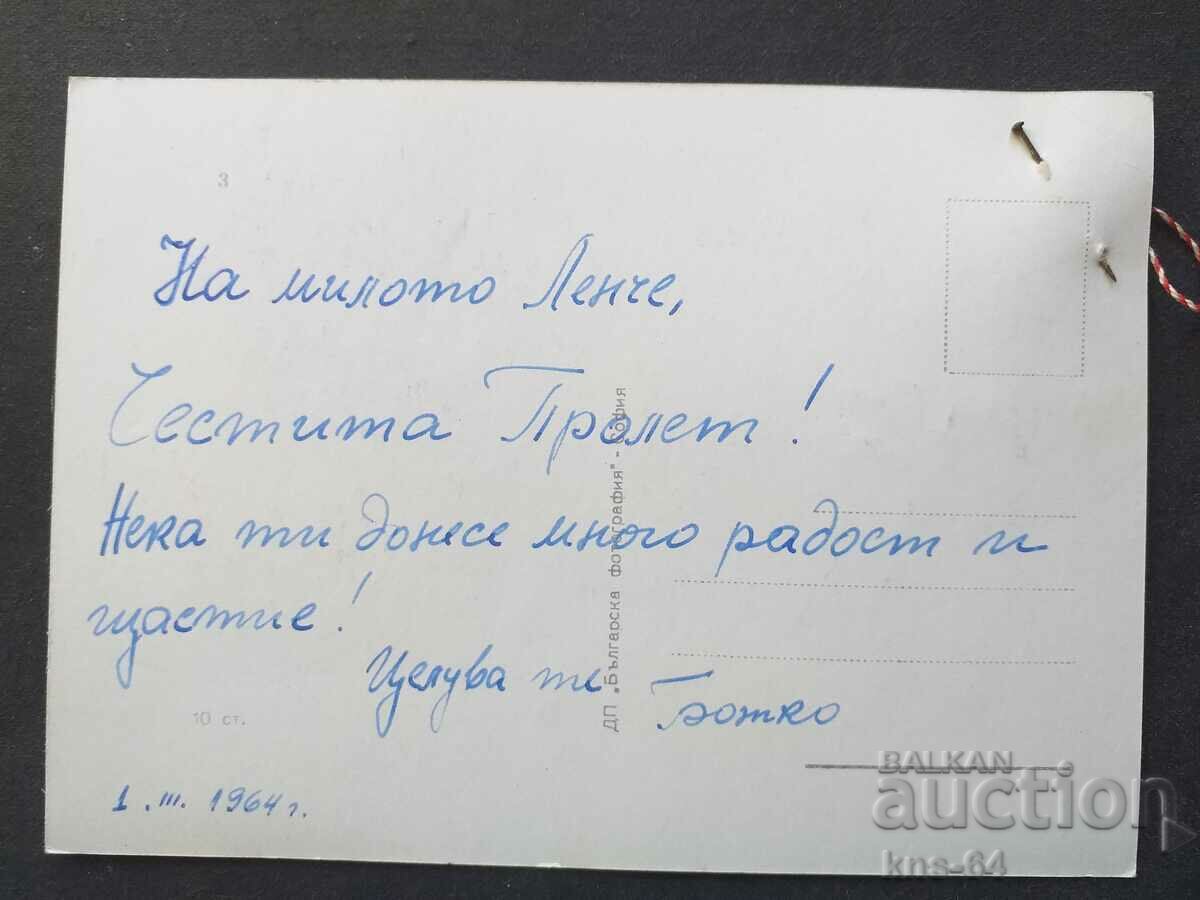 3
На милото Ленче,
Честита Пролет!
Нека ти донесе много радост и
щастие!
Целува те Божко
10 ст.
1. III. 1964 г.
ДП „Българска фотография" - София
BALKAN
auction
kns-64